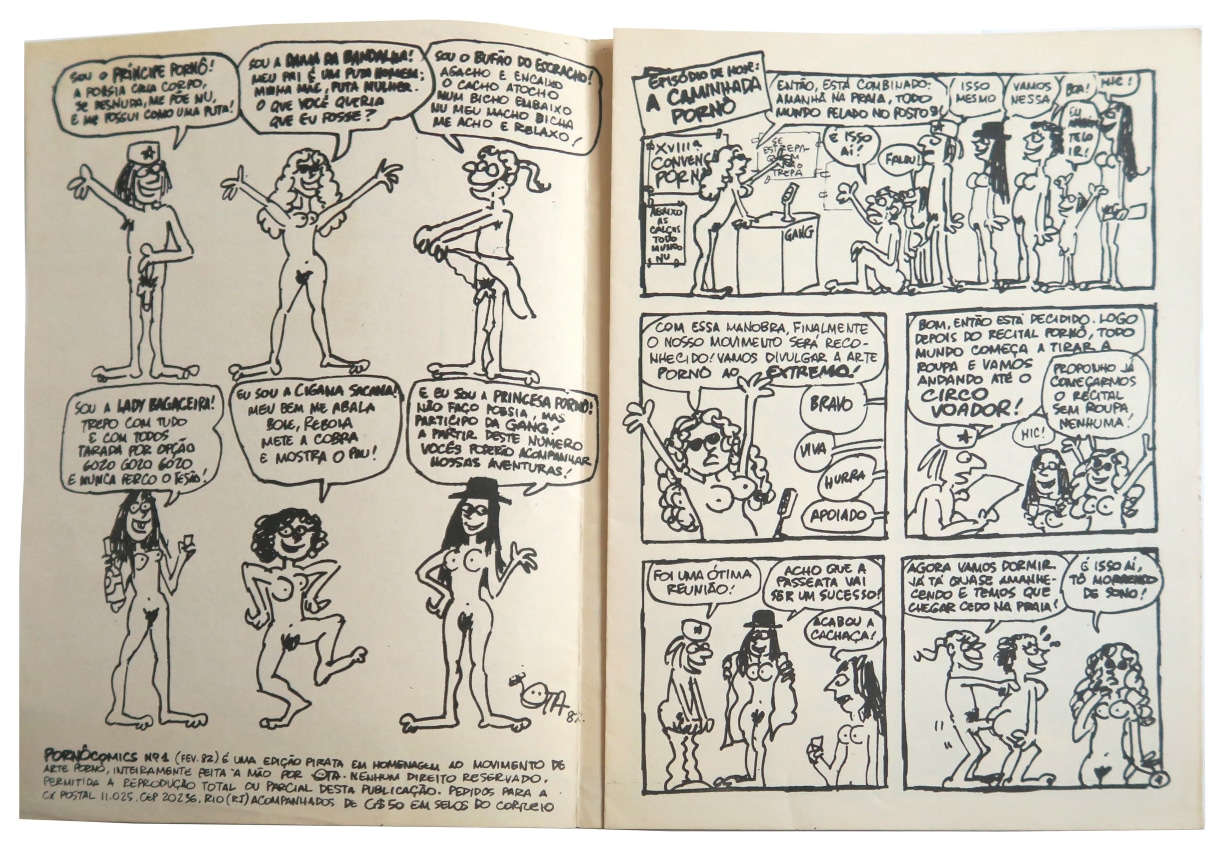 SOU O PRÍNCIPE PORNÔ!
A POESIA CAVA CORPO,
SE DESNUDA, ME PÕE NU,
E ME POSSUI COMO UMA PUTA!
SOU A DAMA DA BANDALHA!
MEU PAI É UM PUTA HOMEM;
MINHA MÃE, PUTA MULHER.
O QUE VOCÊ QUERIA
QUE EU FOSSE?
SOU O BUFÃO DO ESCRACHO!
AGACHO E ENCAIXO
O CACHO ATOCHO
NUM BICHO EMBAIXO
NU MEU MACHO BICHA
ME ACHO E RELAXO!
SOU A LADY BAGACEIRA!
TREPO COM TUDO
E COM TODOS
TARADA POR OPÇÃO
GOZO GOZO GOZO
E NUNCA PERCO O TESÃO!
EU SOU A CIGANA SACANA!
MEU BEM ME ABALA
BOLE, REBOLA
METE A COBRA
E MOSTRA O PAU!
E EU SOU A PRINCESA PORNÔ!
NÃO FAÇO POESIA, MAS
PARTICIPO DA GANG!
A PARTIR DESTE NÚMERO
VOCÊS PODERÃO ACOMPANHAR
NOSSAS AVENTURAS!
OTA
PORNÔCOMICS Nº 1 (FEV. 82) É UMA EDIÇÃO PIRATA EM HOMENAGEM AO MOVIMENTO DE
ARTE PORNÔ, INTEIRAMENTE FEITA A MÃO POR OTA. NENHUM DIREITO RESERVADO.
PERMITIDA A REPRODUÇÃO TOTAL OU PARCIAL DESTA PUBLICAÇÃO. PEDIDOS PARA A
CX POSTAL 11.025. CEP 20236, RIO (RJ) ACOMPANHADOS DE CR$ 50 EM SELOS DO CORREIO
EPISÓDIO DE HOJE:
A CAMINHADA
PORNÔ
ENTÃO, ESTÁ COMBINADO:
AMANHÃ NA PRAIA, TODO
MUNDO PELADO NO POSTO 9!
ISSO
MESMO
VAMOS
NESSA.
BOA!
HIC!
EU
TELO
IR!
É ISSO
AÍ!
FALOU!
XVIIIª
CONVENÇ
PORNÔ
SE
ESTREPA
QUEM
NÃO
TREPA
ABAIXO
AS
CALÇAS
TODO
MUNDO
NU
GANG
COM ESSA MANOBRA, FINALMENTE
O NOSSO MOVIMENTO SERÁ RECO-
NHECIDO! VAMOS DIVULGAR A ARTE
PORNÔ AO EXTREMO!
BRAVO
VIVA
HURRA
APOIADO
BOM, ENTÃO ESTÁ DECIDIDO. LOGO
DEPOIS DO RECITAL PORNÔ, TODO
MUNDO COMEÇA A TIRAR A
ROUPA E VAMOS
ANDANDO ATÉ O
CIRCO
VOADOR!
PROPONHO JÁ
COMEÇARMOS
O RECITAL
SEM ROUPA
NENHUMA!
HIC!
FOI UMA ÓTIMA
REUNIÃO!
ACHO QUE A
PASSEATA VAI
SER UM SUCESSO!
ACABOU A
CACHAÇA!
AGORA VAMOS DORMIR.
JÁ TÁ QUASE AMANHE-
CENDO E TEMOS QUE
CHEGAR CEDO NA PRAIA!
É ISSO AÍ,
TÔ MORRENDO
DE SONO!